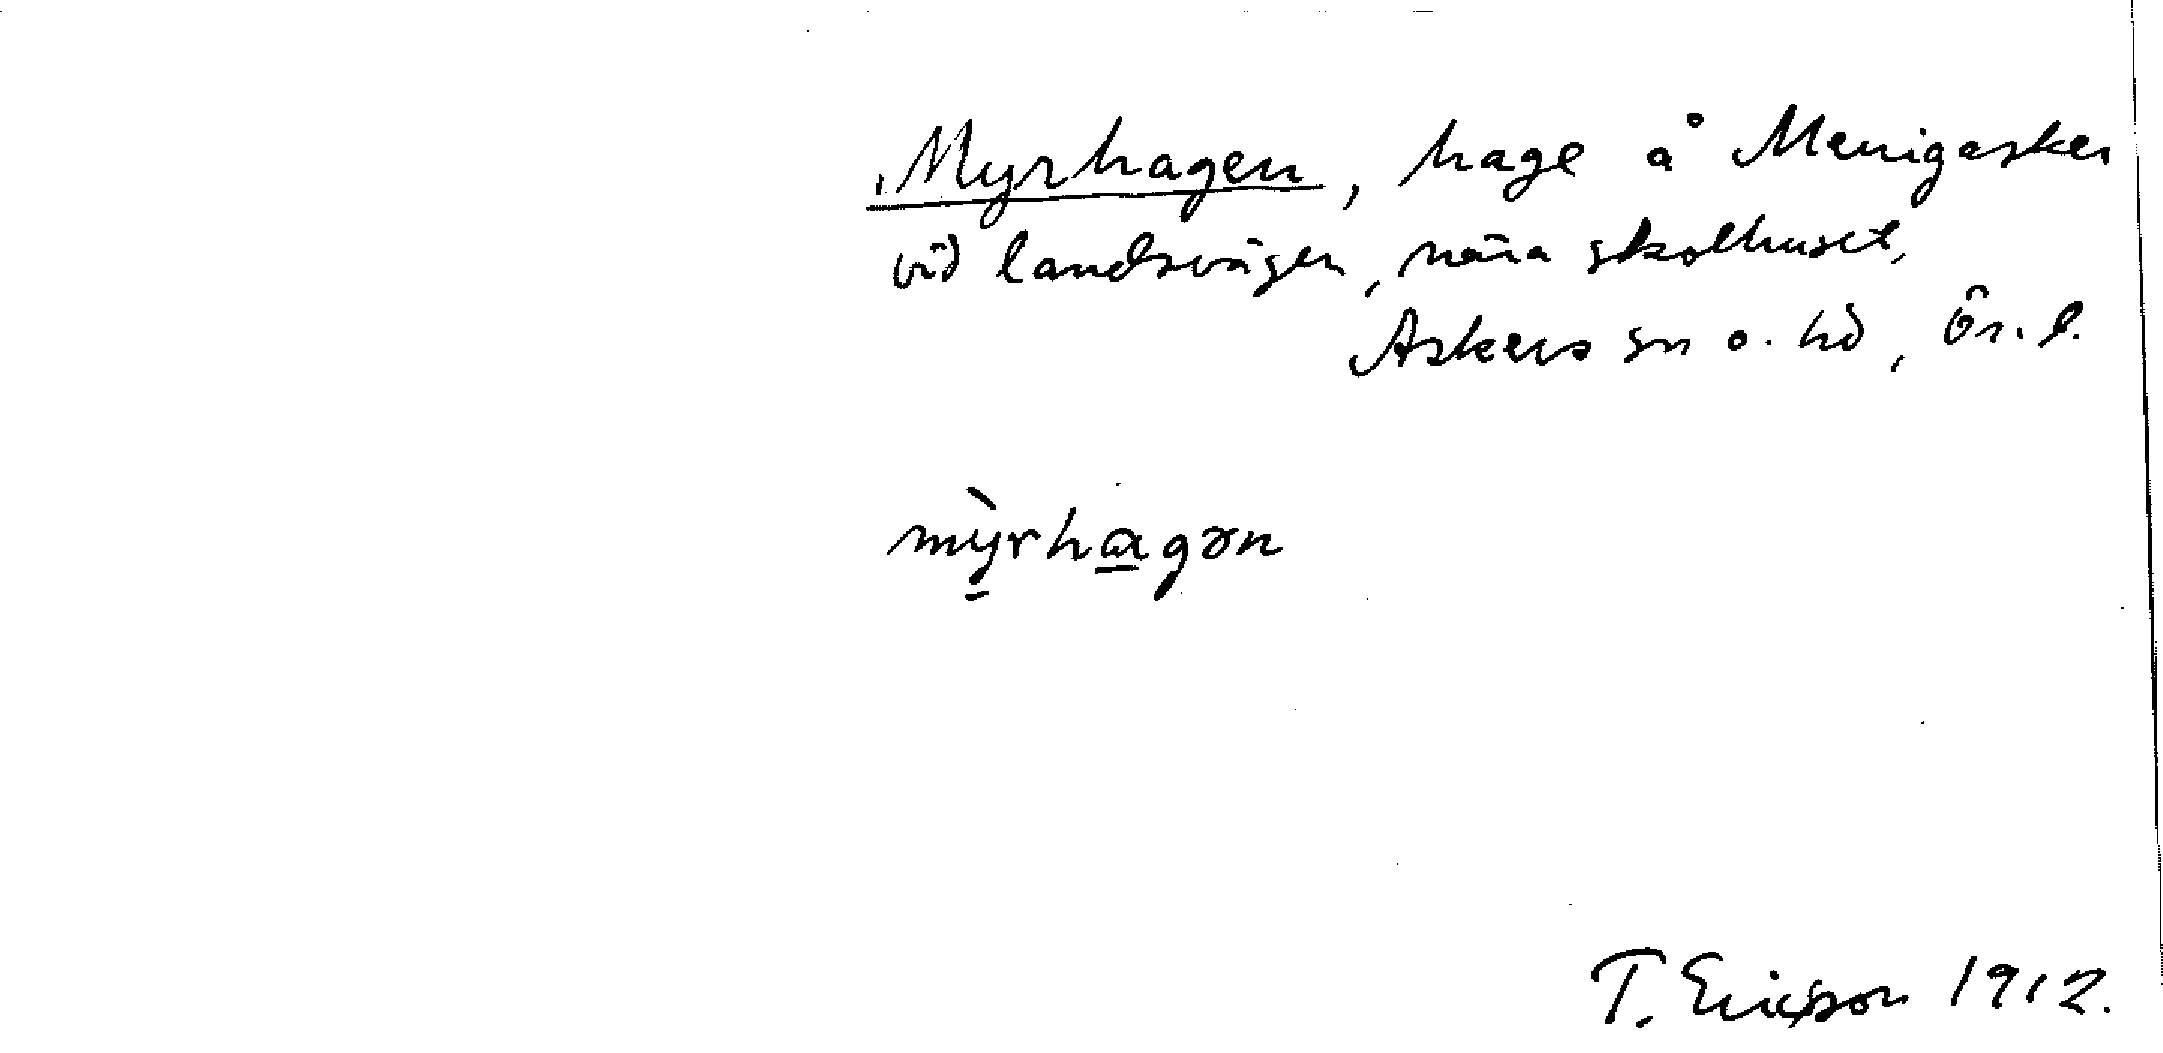 Myrhagen, hage å Menigasker
vid landsvägen, nära skolhuset,
Askers sn o. hd, Ör. l.
mỳ̠rha̠gən
T. Ericsson 1912.